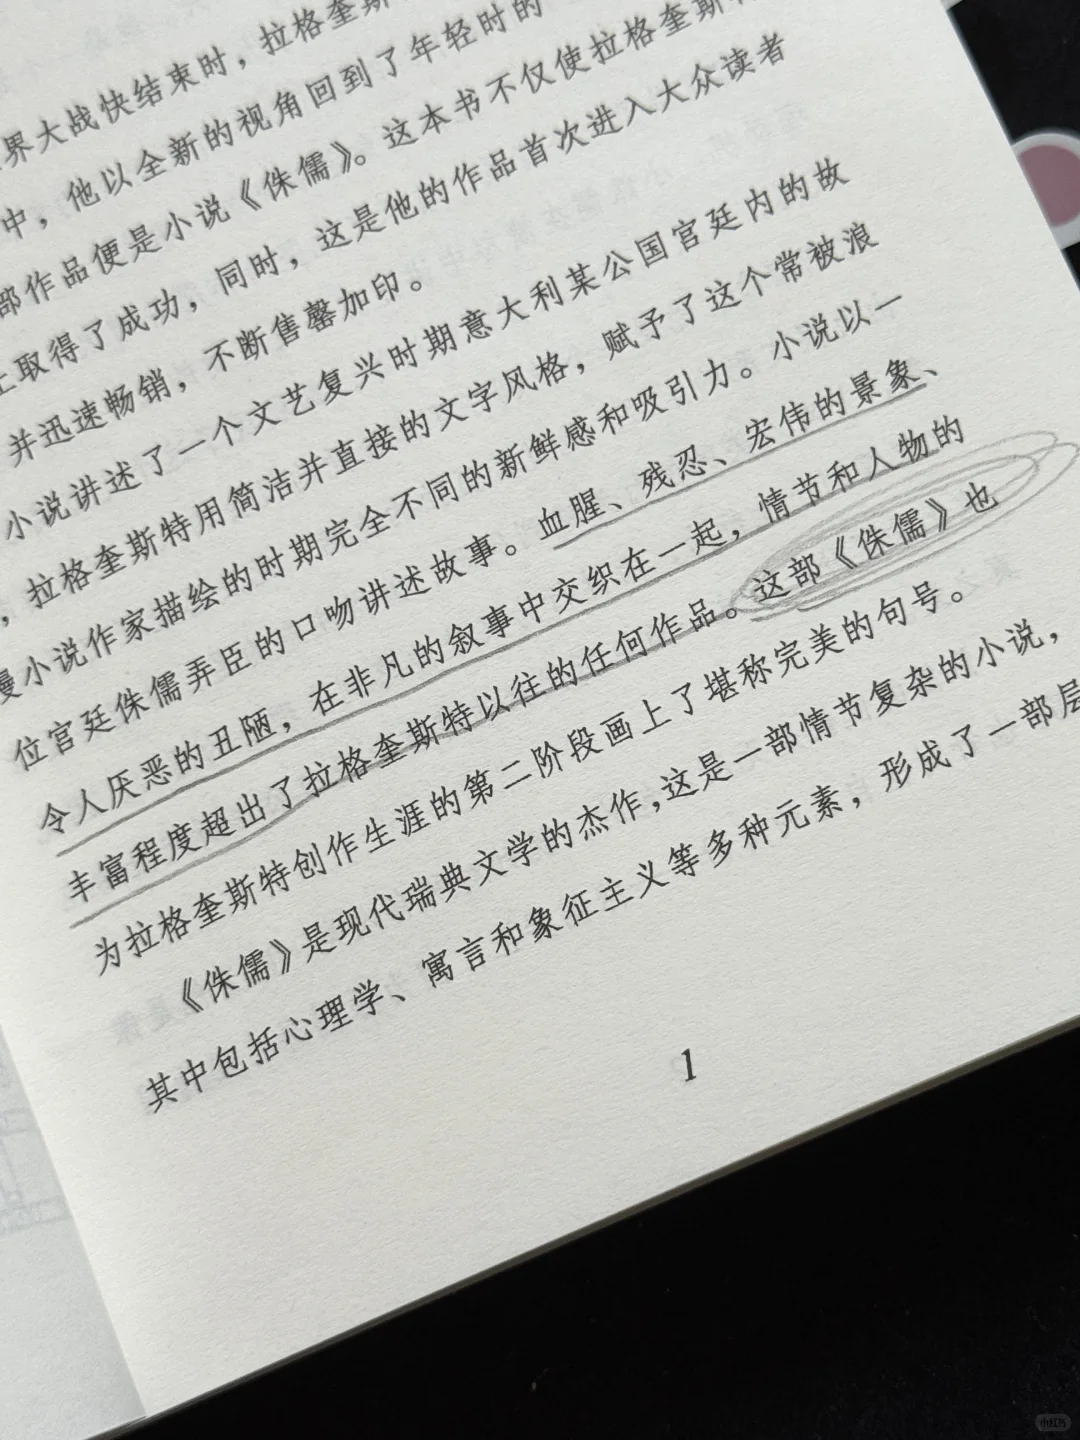 界大战快结束时，拉格奎斯
中，他以全新的视角回到了年轻时的
部作品便是小说《侏儒》。这本书不仅使拉格奎斯特
上取得了成功，同时，这是他的作品首次进入大众读者
并迅速畅销，不断售罄加印。
小说讲述了一个文艺复兴时期意大利某公国宫廷内的故
，拉格奎斯特用简洁并直接的文字风格，赋予了这个常被浪
漫小说作家描绘的时期完全不同的新鲜感和吸引力。小说以一
位宫廷侏儒弄臣的口吻讲述故事。血腥、残忍、宏伟的景象、
令人厌恶的丑陋，在非凡的叙事中交织在一起，情节和人物的
丰富程度超出了拉格奎斯特以往的任何作品。这部《侏儒》也
为拉格奎斯特创作生涯的第二阶段画上了堪称完美的句号。
《侏儒》是现代瑞典文学的杰作，这是一部情节复杂的小说，
其中包括心理学、寓言和象征主义等多种元素，形成了一部层
1
小红书